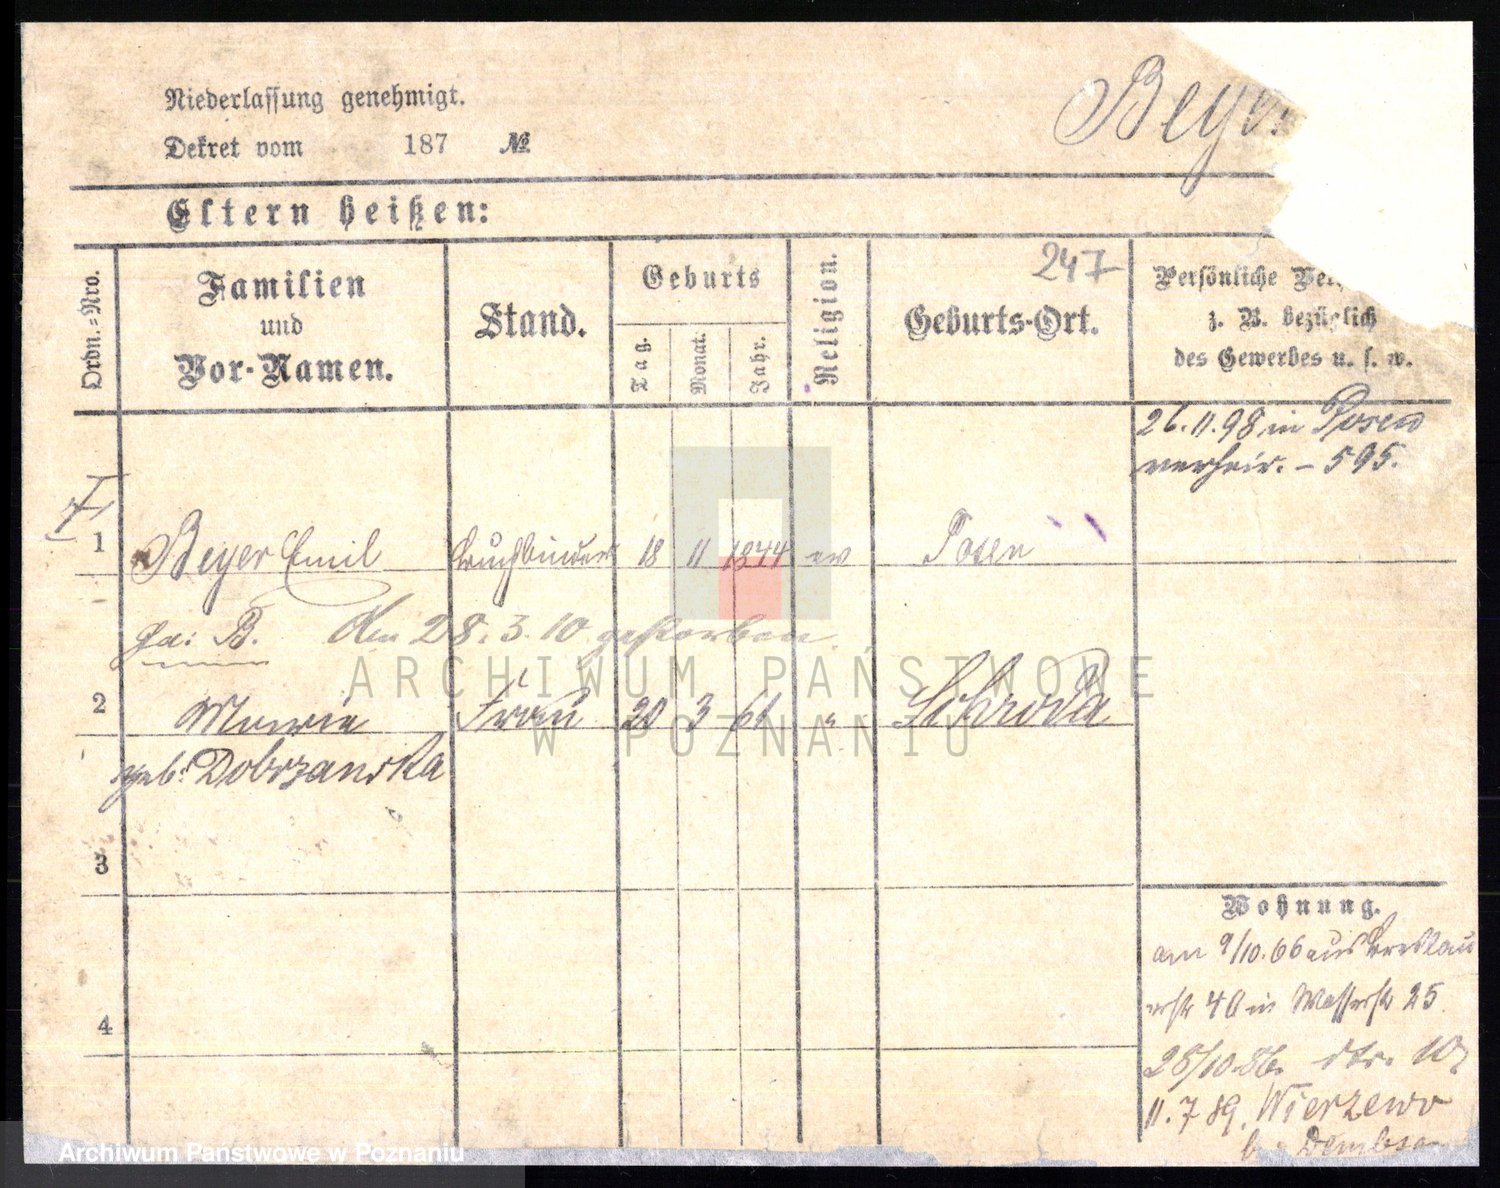 Niederlassung genehmigt.
Beyer
Dekret vom 187 №
Eltern heißen:
Ordn.-Nro.
Familien
und
Vor-Namen.
Stand.
Geburts
Tag.
Monat.
Jahr.
Religion.
247
Geburts-Ort.
Persönliche
z. B. bezüglich
des Gewerbes u. s. w.
26.11.98 in Posen
verheir. - 595.
1 Beyer Emil Buchbinder 18 11 1844 ev Posen
B. den 28.3.10 gestorben.
2 Marie Frau 20 3 61 " Schroda
geb. Dobrzanska
3
4
Wohnung.
am 9/10.66 aus Breslau
40 in Wasserstr 25
25/10.86.
11.7 89. Wierzewo
b Dembsen
ARCHIWUM PAŃSTWOWE
W POZNANIU
Archiwum Państwowe w Poznaniu